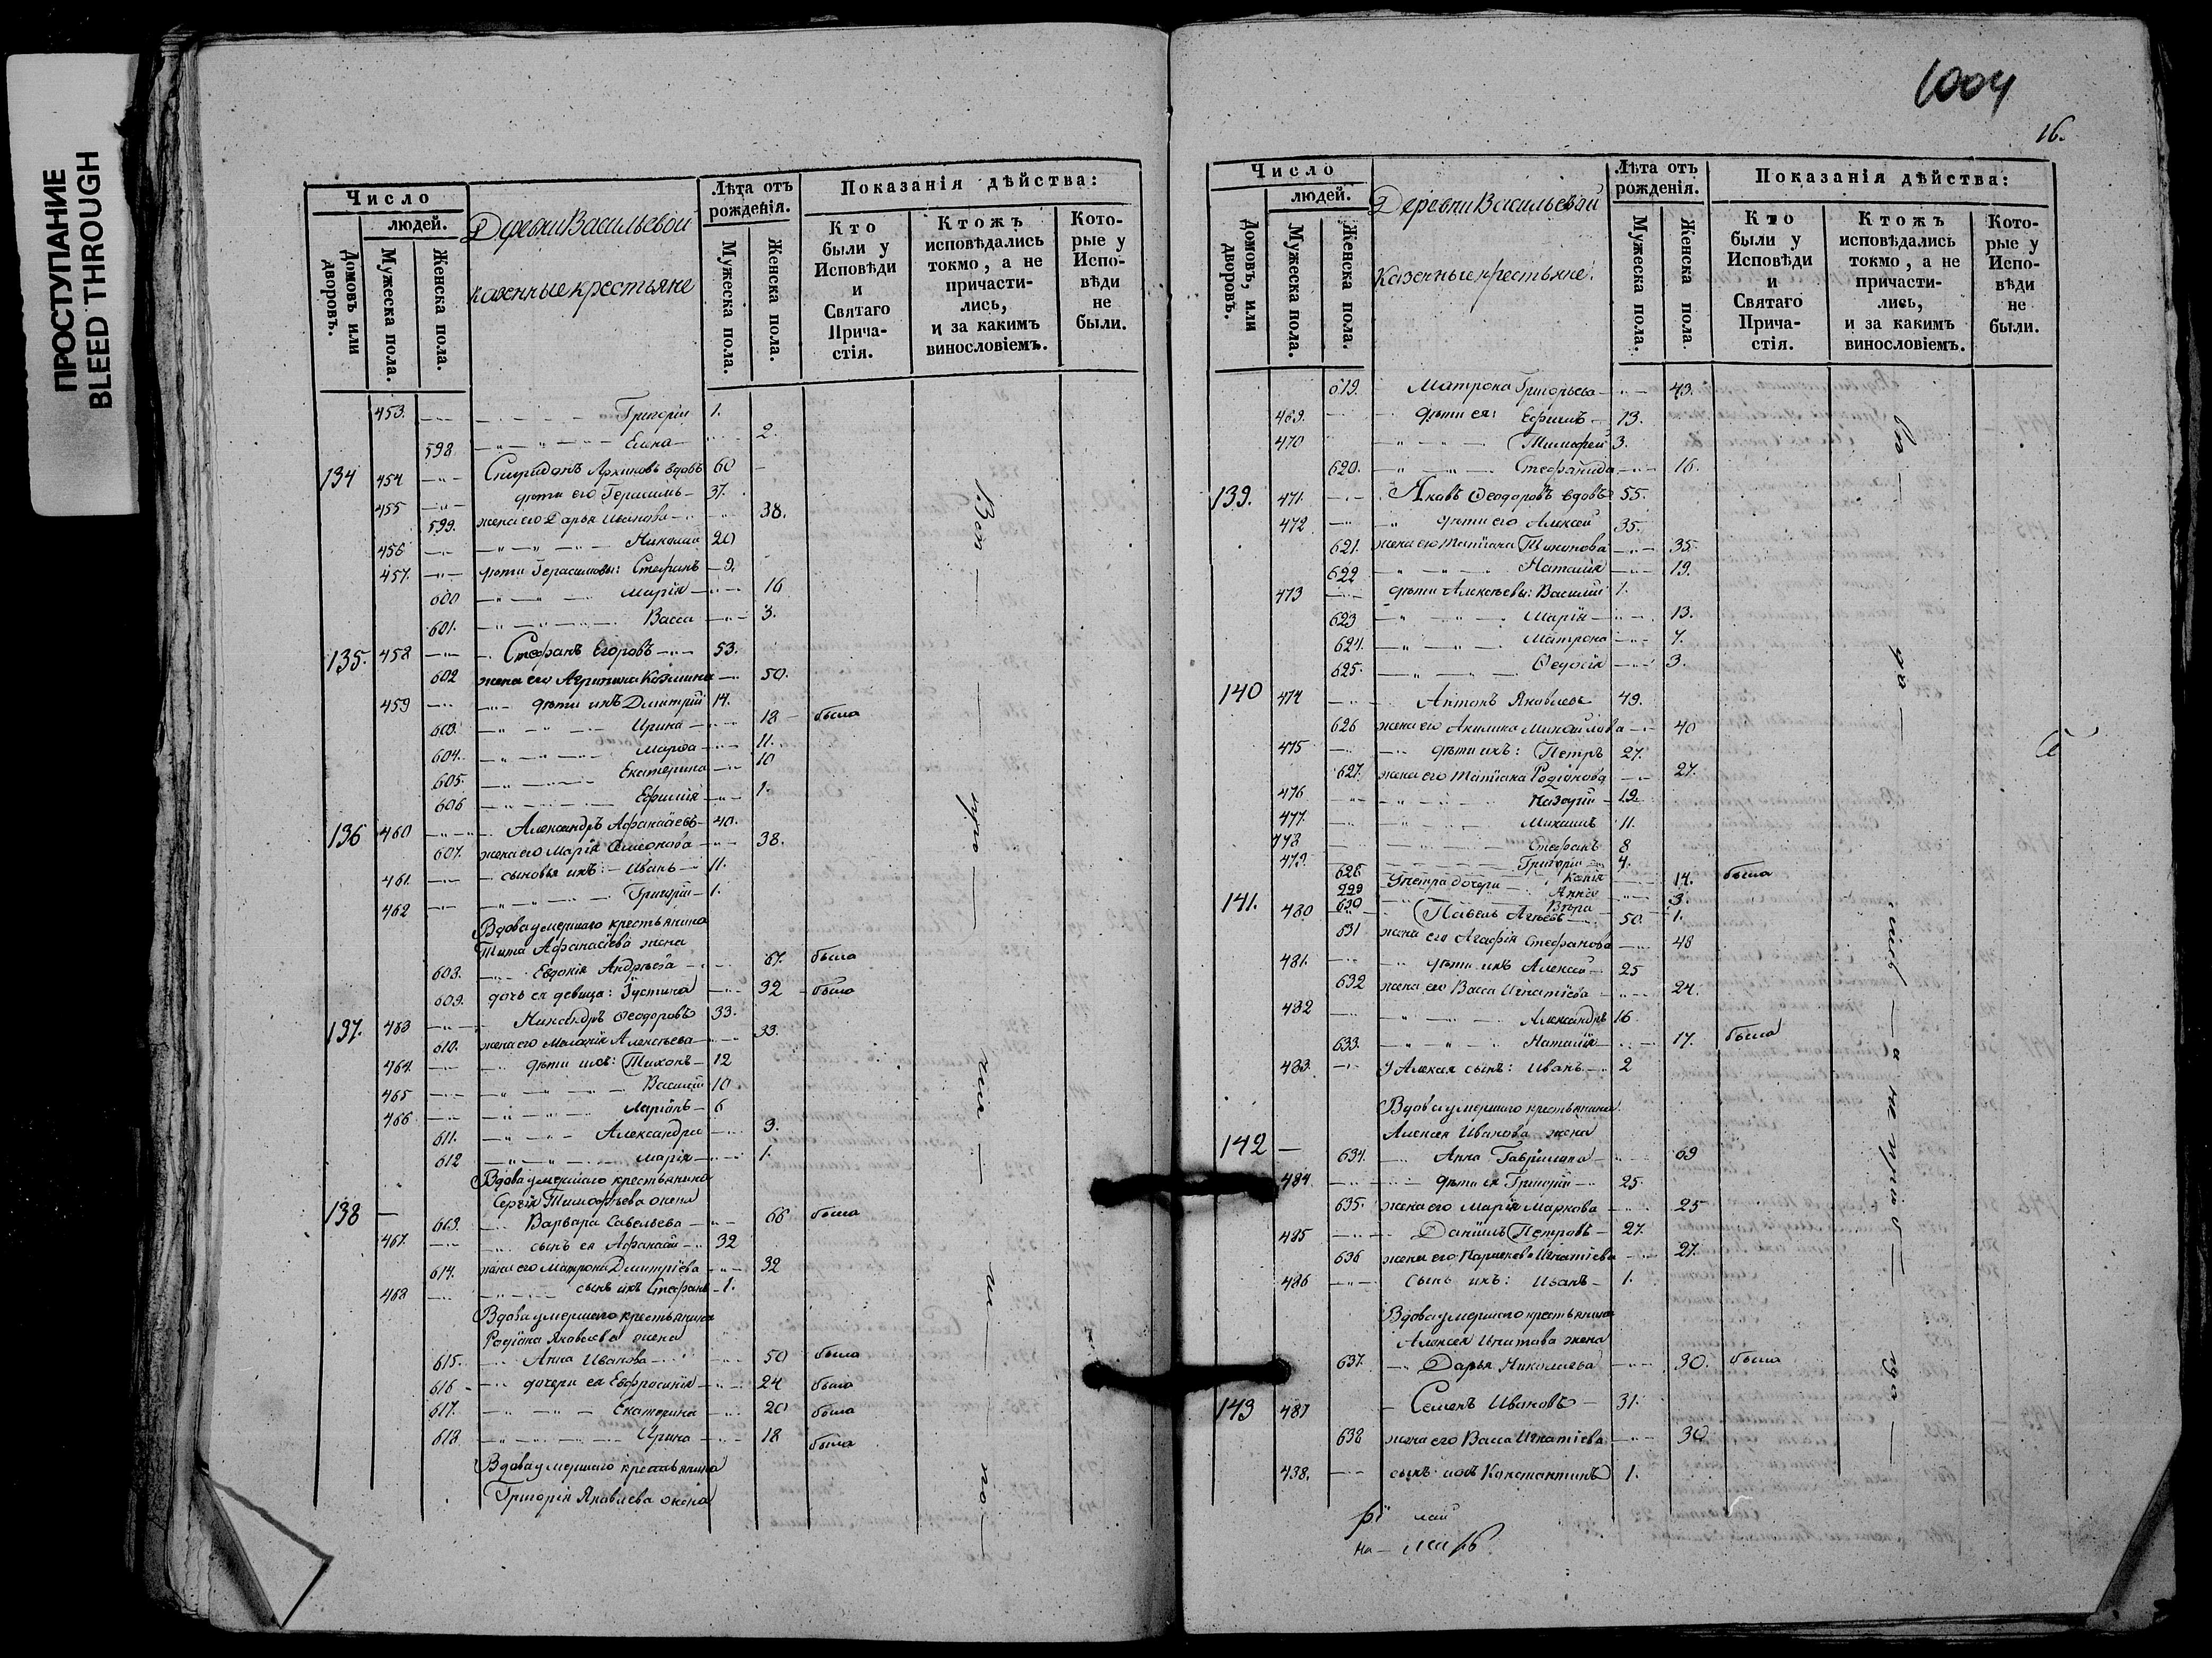 ПРОСТУПАНИЕ
BLEED THROUGH
Число
людей.
Домовъ или дворовъ.
Мужеска пола.
Женска пола.
Деревни Васильевой
казенные крестьяне
Лѣта отъ рожденія.
Мужеска пола.
Женска пола.
Показанія дѣйства:
Кто были у Исповѣди и Святаго Прича-стія.
Ктожъ исповѣдались токмо, а не причасти-лись, и за какимъ винословіемъ.
Кото-рые у Испо-вѣди не были.
453. Григорій 1.
598 Елена 2.
134 454 Спиридонъ Архиповъ вдовъ 60
455 дѣти его Герасимъ 37.
599. жена его Дарья Иванова 38.
456 Николай 20
457. дѣти Герасимовы: Стефанъ 9.
600 Марія 16
601. Васса 3.
135. 458 Стефанъ Егоровъ 53.
602 жена его Агрипина Козмина 50.
459 дѣти ихъ Дмитрій 14.
603. Ирина 18 была
604. Марѳа 11.
605. Екатерина 10
606 Ефимія 1.
136 460 Александръ Афанасіевъ 40.
607. жена его Марія Симеонова 38.
461. сыновья ихъ: Иванъ 11.
462 Григорій 1.
Вдова умершаго крестьянина
Тита Афанасіева жена
608. Евдокія Андрѣева 67. была
609. дочь ея девица: Іустина 32 была
137. 463 Никандръ Ѳеодоровъ 33.
610. жена его Меланія Алексѣева 33.
464 дѣти ихъ: Тихонъ 12
465 Василій 10
466 Ларіонъ 6
611. Александра 3.
612 Марія 1.
Вдова умершаго крестьянина
Сергія Тимофѣева жена
138 613. Варвара Савельева 66 была
467. сынъ ея Афанасій 32
614. жена его Матрона Дмитріева 32
468 сынъ ихъ Стефанъ 1.
Вдова умершаго крестьянина
Родіона Яковлева жена
615. Анна Иванова 50 была
616 дочери ея Евфросинія 24 была
617. Екатерина 20 была
618 Ирина 18 была
Вдова умершаго крестьянина
Григорія Яковлева жена
1004
16.
Число
людей.
Домовъ, или дворовъ.
Мужеска пола.
Женска пола.
Деревни Васильевой
Казенные крестьяне.
Лѣта отъ рожденія.
Мужеска пола.
Женска пола.
Показанія дѣйства:
Кто были у Исповѣди и Святаго Прича-стія.
Ктожъ исповѣдались токмо, а не причасти-лись, и за какимъ винословіемъ.
Кото-рые у Испо-вѣди не были.
619. Матрона Григорьева 43.
469. дѣти ея: Ефимъ 13.
470 Тимофей 3.
620. Стефанида 16.
139. 471. Яковъ Ѳеодоровъ вдовъ 55.
472 дѣти его Алексей 35.
621. жена его Татіана 35.
622 Наталія 19.
473 дѣти Алексѣевы: Василій 1.
623 Марія 13.
624. Матрона 7.
625. Ѳедосія 3.
140 474 Антонъ Яковлевъ 49.
626 жена его Акилина Михайлова 40
475 дѣти ихъ: Петръ 27.
627. жена его Татіана Родіонова 27.
476 19
477. Михаилъ 11.
478 Стефанъ 8
479. Григорій 4.
628 У Петра дочери 14. была
229 Анна 3.
630 Вѣра 1.
141. 480 Павелъ 50.
631 жена его Агафія Стефанова 48
481. дѣти ихъ Алексей 25
632 жена его Васса Игнатіева 24.
482 Александръ 16
633. Наталія 17. была
483. У Алексея сынъ: Иванъ 2
Вдова умершаго крестьянина
Алексея Иванова жена
142 634. Анна Гаврилова 69
484 дѣти ея Григорій 25
635. жена его Марія Маркова 25
485 Даніилъ Петровъ 27.
636 жена его Параскева Игнатіева 27.
486 сынъ ихъ: Иванъ 1.
Вдова умершаго крестьянина
Алексея Игнатова жена
637. Дарья Николаева 30. была
143 487 Семенъ Ивановъ 31.
638 жена его Васса Игнатіева 30
438. сынъ ихъ Константинъ 1.